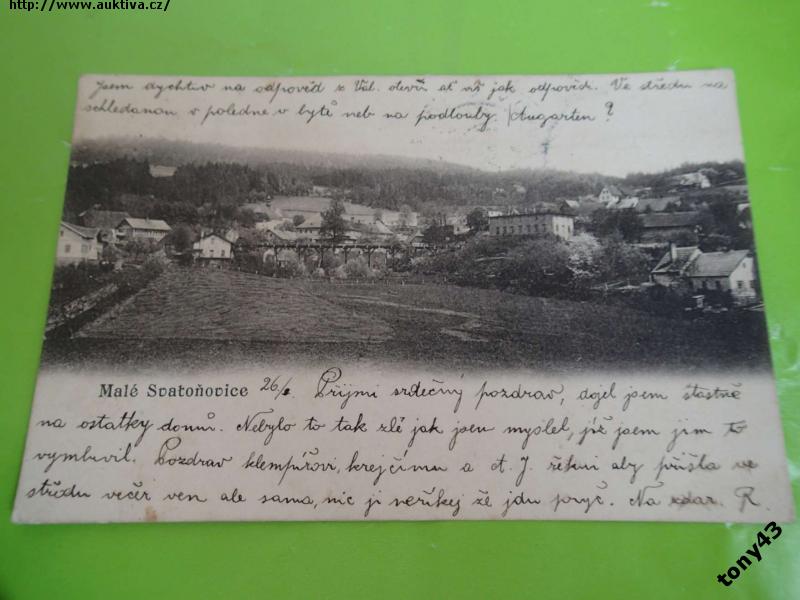 http://www.auktiva.cz/
jsem dychtiv na odpověd z Vál. otevři ať víš jak odpovědi. Ve středu na
schledanou v poledne v bytě neb na podlouby. Augarten ?
Malé Svatoňovice 26/ Přijmi srdečný pozdrav, dojel jsem šťastně
na ostatky domů. Nebylo to tak zlé jak jsem myslel, již jsem jim to
vymluvil. Pozdrav klempířovi, krejčímu a A. J. řekni aby přišla ve
středu večer ven ale sama, nic ji neříkej že jdu pryč. Na zdar. R.
tony43